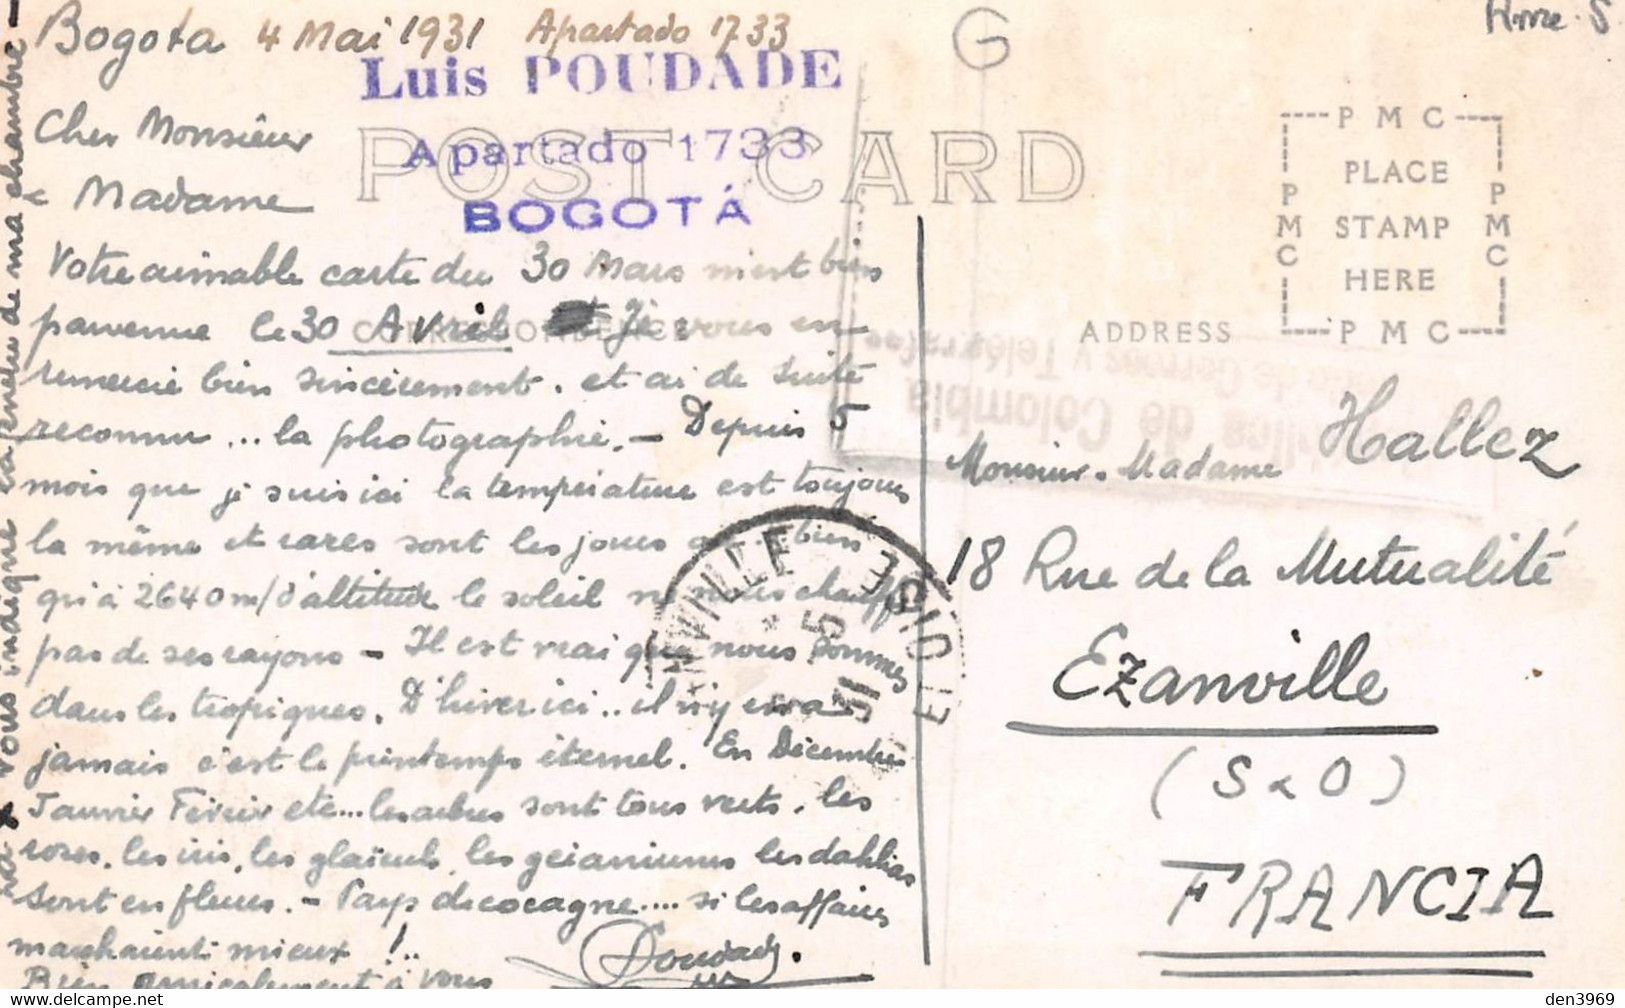 Bogota 4 Mai 1931 Apartado 1733
Luis POUDADE
Apartado 1733
BOGOTÁ
POST CARD
CORRESPONDENCE
Cher Monsieur
& Madame
Votre aimable carte du 30 Mars m'est bien
parvenue le 30 Avril Je vous en
remercie bien sincèrement. et ai de suite
reconnu... la photographie. — Depuis 5
mois que je suis ici la température est toujours
la même et rares sont les jours bien
qu'à 2640m/d'altitude le soleil ne nous chauffe
pas de ses rayons — Il est vrai que nous sommes
dans les tropiques. D'hiver ici.. il n'y en a
jamais c'est le printemps éternel. En Décembre
Janvier Février etc... les arbres sont tous verts. les
roses, les iris, les glaïeuls, les géraniums les dahlias
sont en fleurs. — Pays de cocagne.... si les affaires
marchaient mieux !..
Bien amicalement à vous
Poudade.
vous indique la fenêtre de ma chambre —
G
Ame. S
P M C
PLACE
STAMP
HERE
P M C
P M C
P M C
ADDRESS
de Colombia
de Correos y Telégrafos
EZANVILLE
SEINE ET OISE
5
31
Monsieur. Madame Hallez
18 Rue de la Mutualité
Ezanville
(S & O)
FRANCIA
den3969